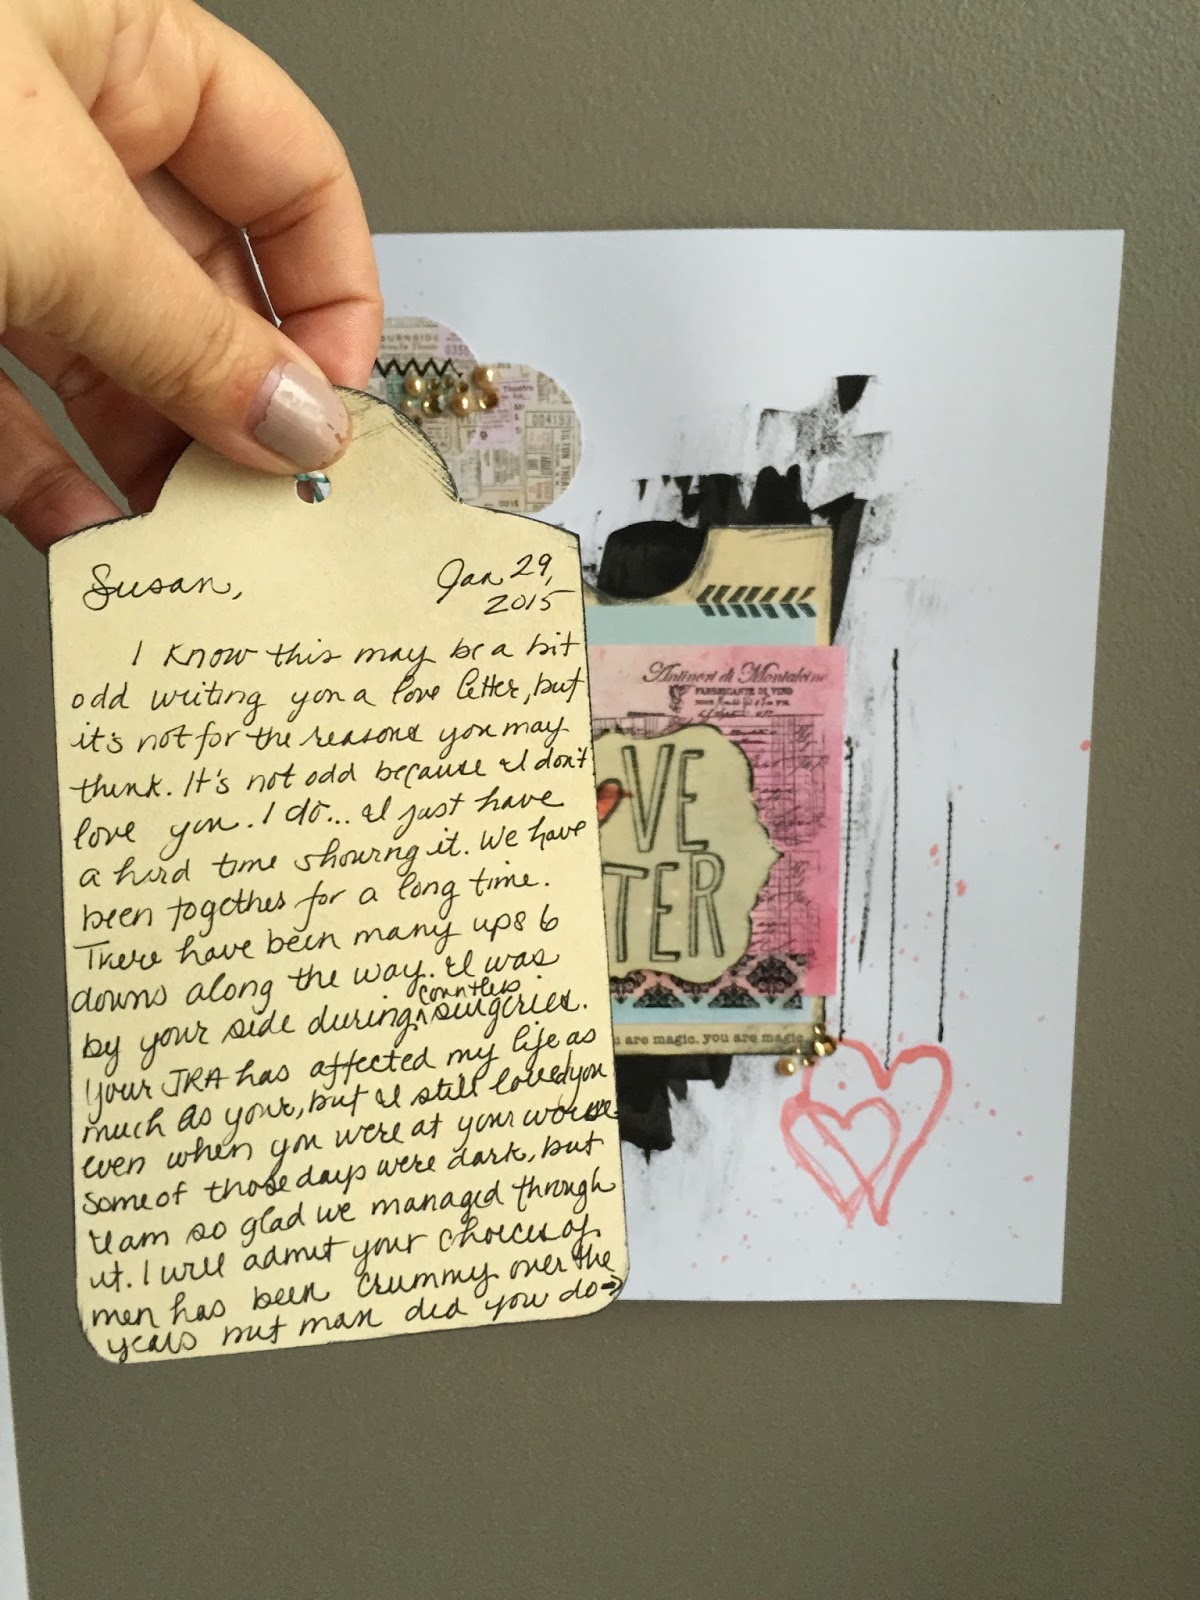 Susan,
Jan 29,
2015
I know this may be a bit
odd writing you a love letter, but
it's not for the reasons you may
think. It's not odd because I don't
love you. I do... I just have
a hard time showing it. We have
been together for a long time.
There have been many ups &
downs along the way. I was
by your side during countless surgeries.
Your JRA has affected my life as
much as your, but I still loved you
even when you were at your worse
some of those days were dark, but
I am so glad we managed through
it. I will admit your choices of
men has been crummy over the
years but man did you do →
BURNSIDE
0355
Theatre
004193
0015
Antinori di Montalcino
FABBRICANTE DI VINO
OVE
TER
u are magic. you are magic.